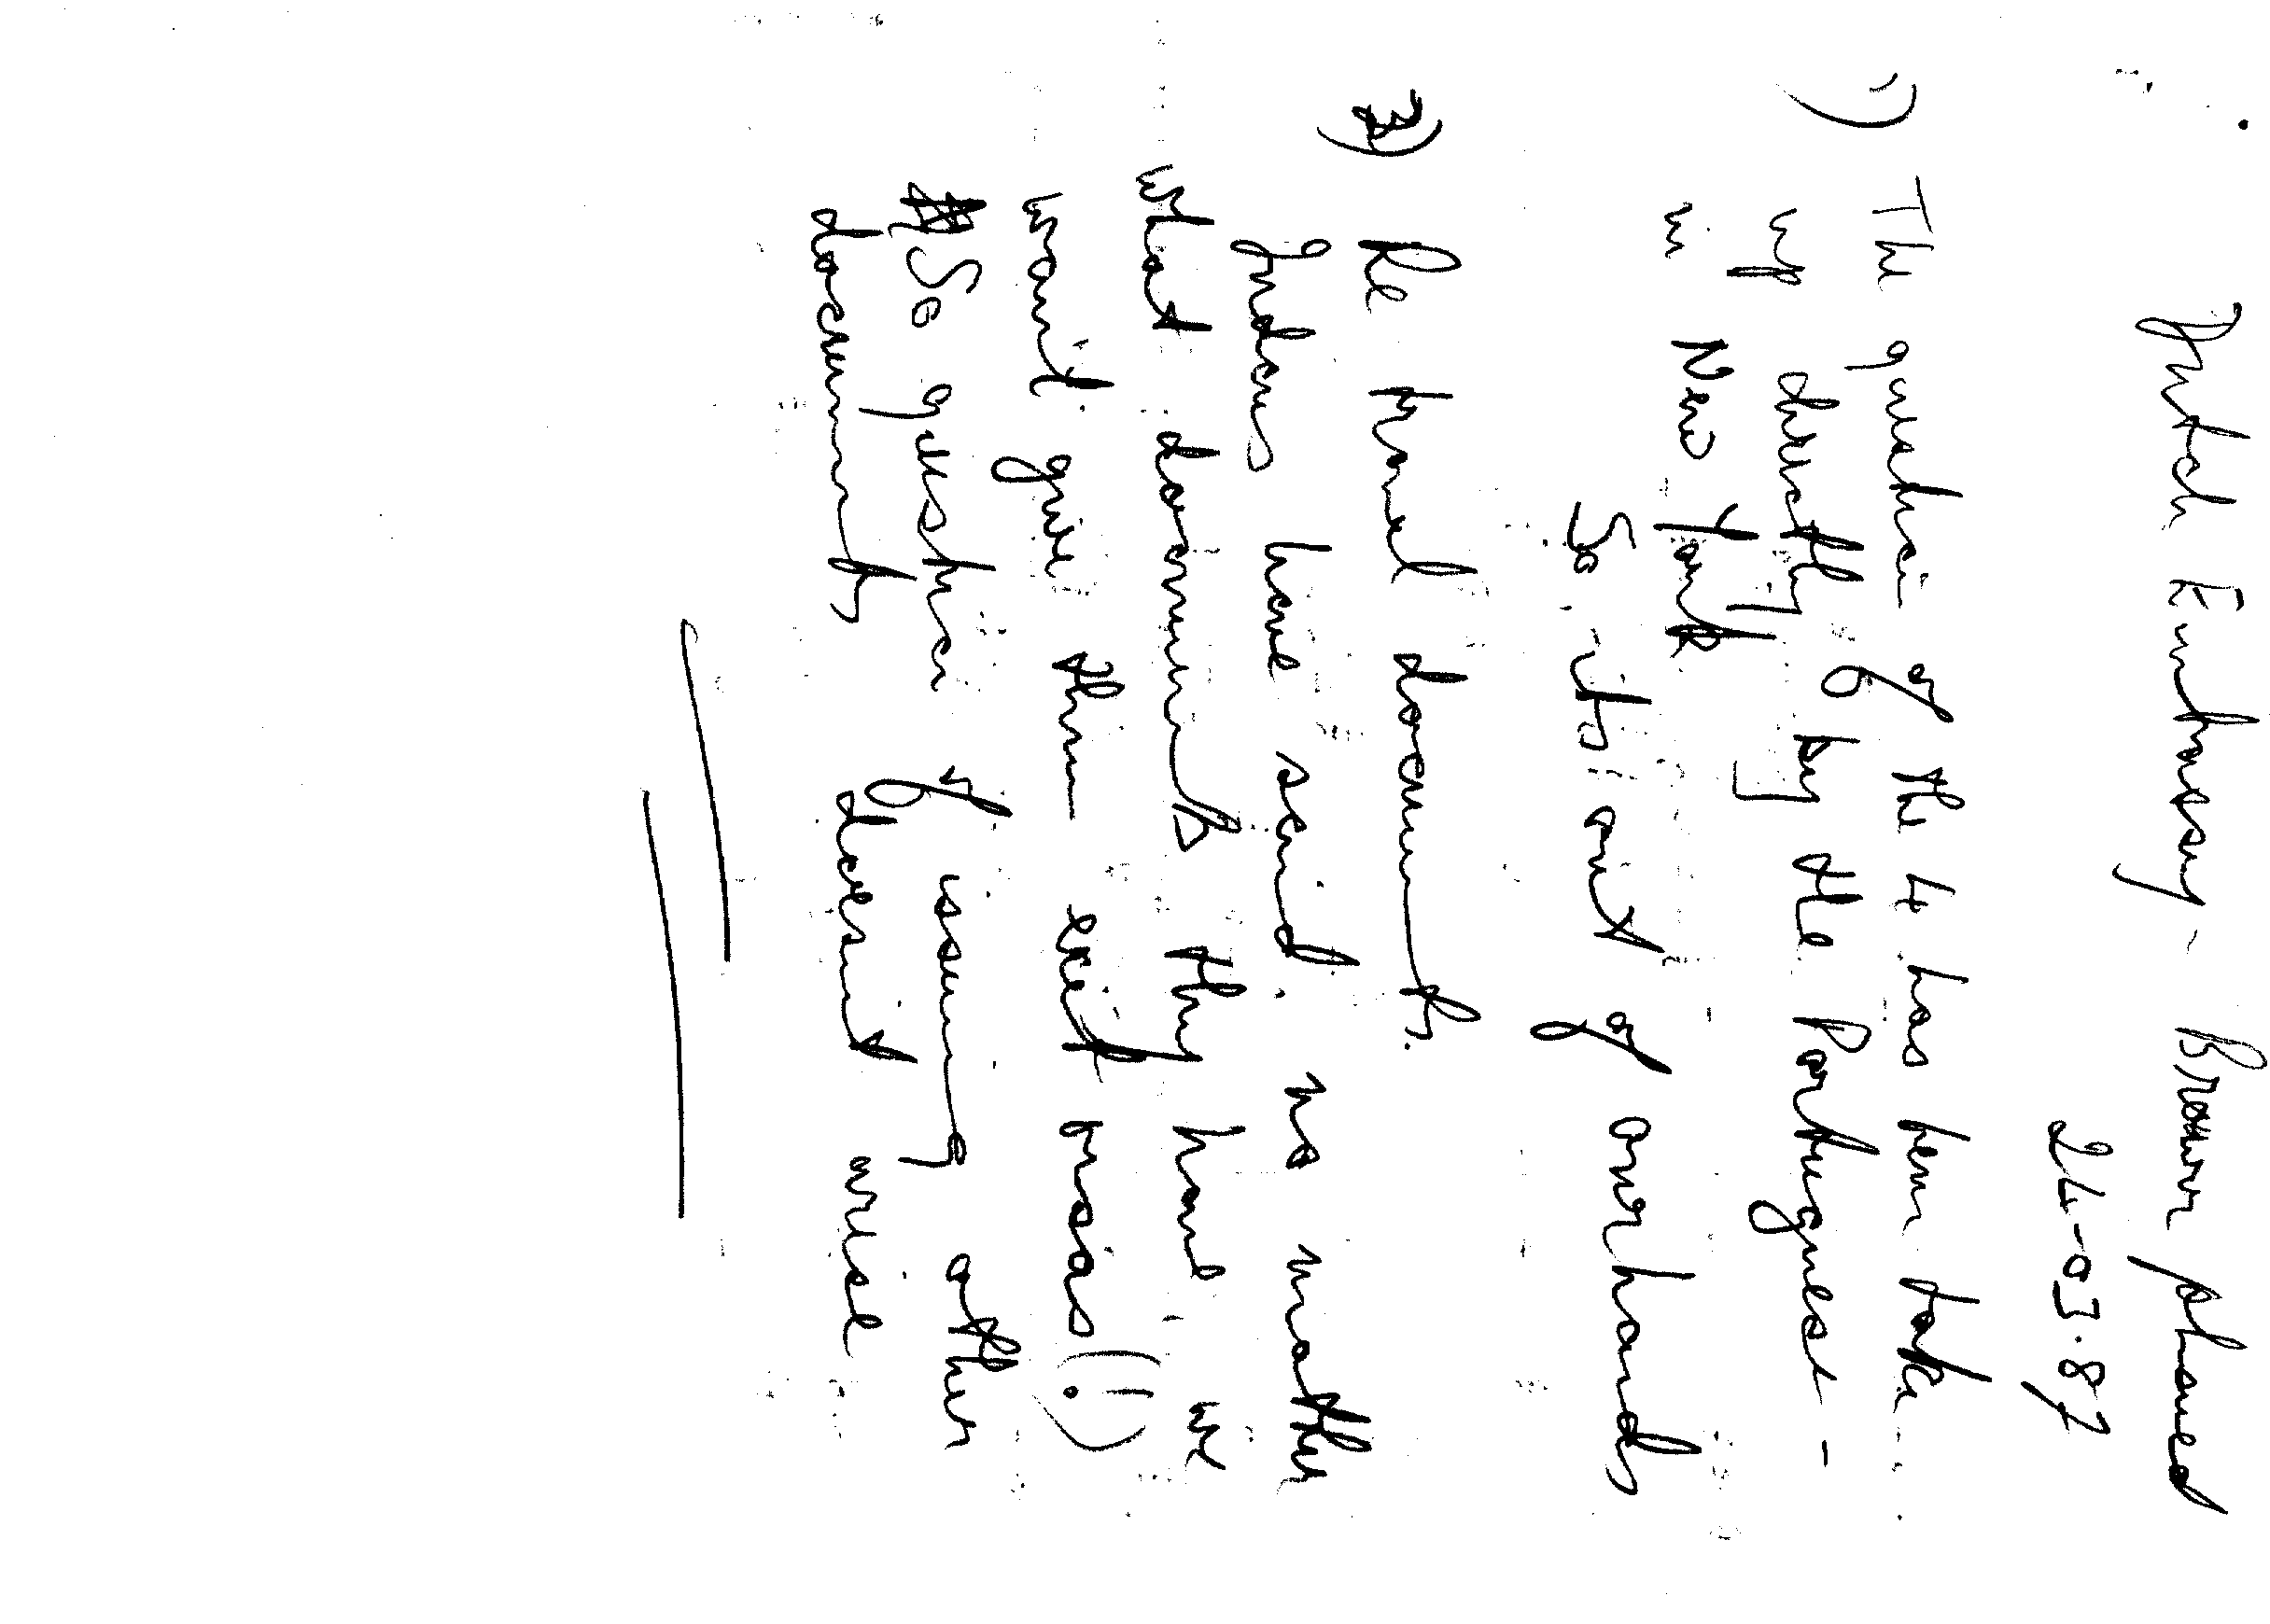 Dutch Embassy - Brown phoned
24-03.87
1) The question of the 4 has been taken
up directly by the Portuguese -
in New York
So its out of our hands
2) Re travel documents.
Indons have said no matter
what documents they have we
won't give them exit visas (!)
So question of issuing other
documents doesn't arise